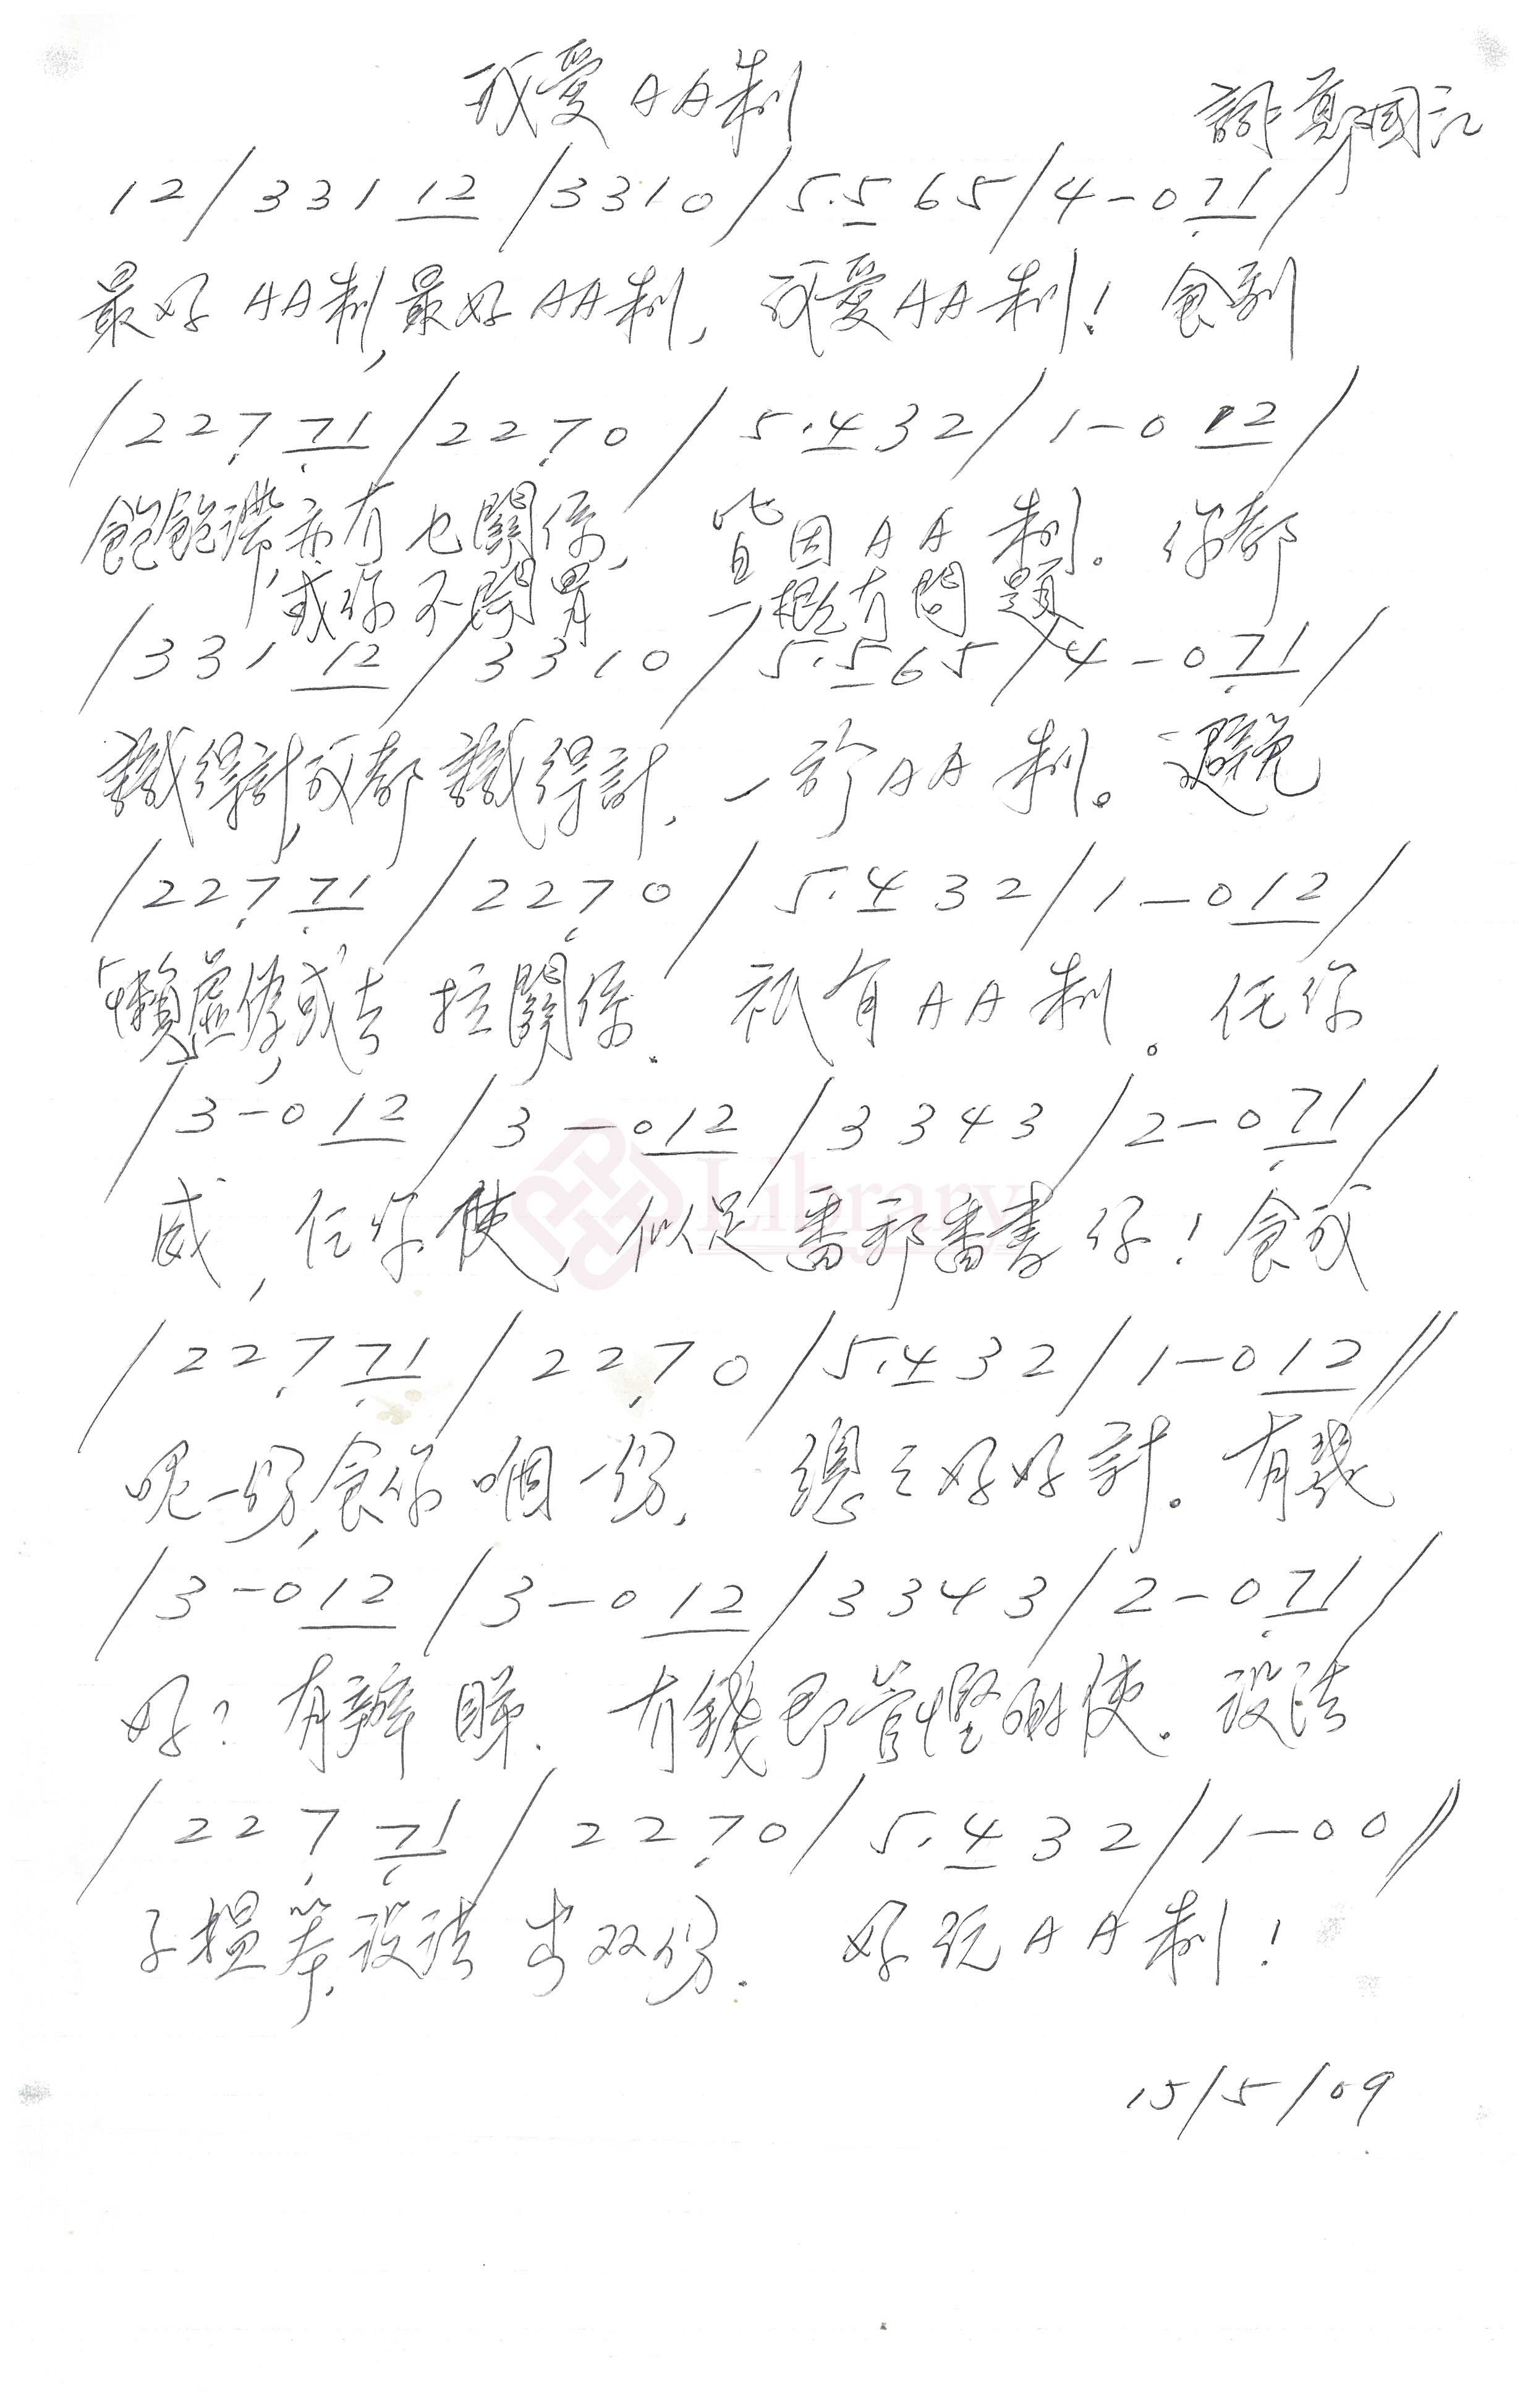 我愛AA制
詞：鄭國江
12/331 12/3310/5.5 65/4-0 71/
最好AA制,最好AA制,我愛AA制！食到
/227 71/2270/5.4 32/1-0 12/
飽飽滯,亦冇乜關係,皆因AA制。你都
或你不開胃 一概冇問題
/331 12/3310/5.5 65/4-0 71/
識得計,我都識得計,一於AA制。避免
/227 71/2270/5.4 32/1-0 12/
懶虛偽,或去拉關係.祇有AA制。任你
/3-0 12/3-0 12/3343/2-0 71/
威,任你使,似足番邦番書仔！食我
Library
/227 71/2270/5.4 32/1-0 12//
呢一份,食你嗰一份,總之好好計。有幾
/3-0 12/3-0 12/3343/2-0 71/
好？有辦睇.冇錢即管慳啲使。設法
/227 71/2270/5.4 32/1-00//
子揾笨,設法 双份.好玩AA制！
15/5/09